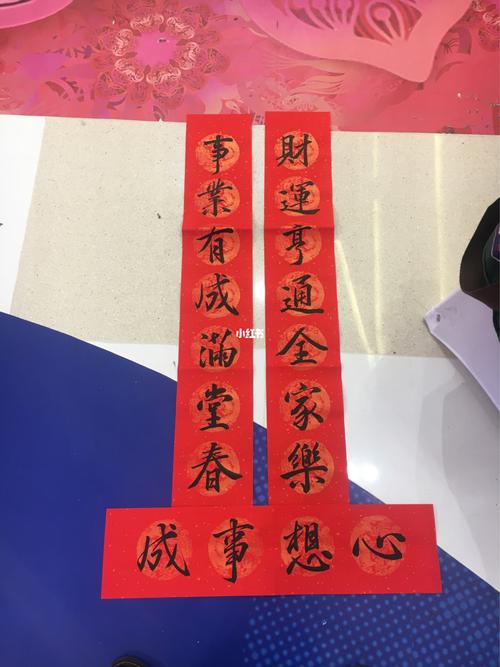 財運亨通全家樂
事業有成滿堂春
心想事成
小红书